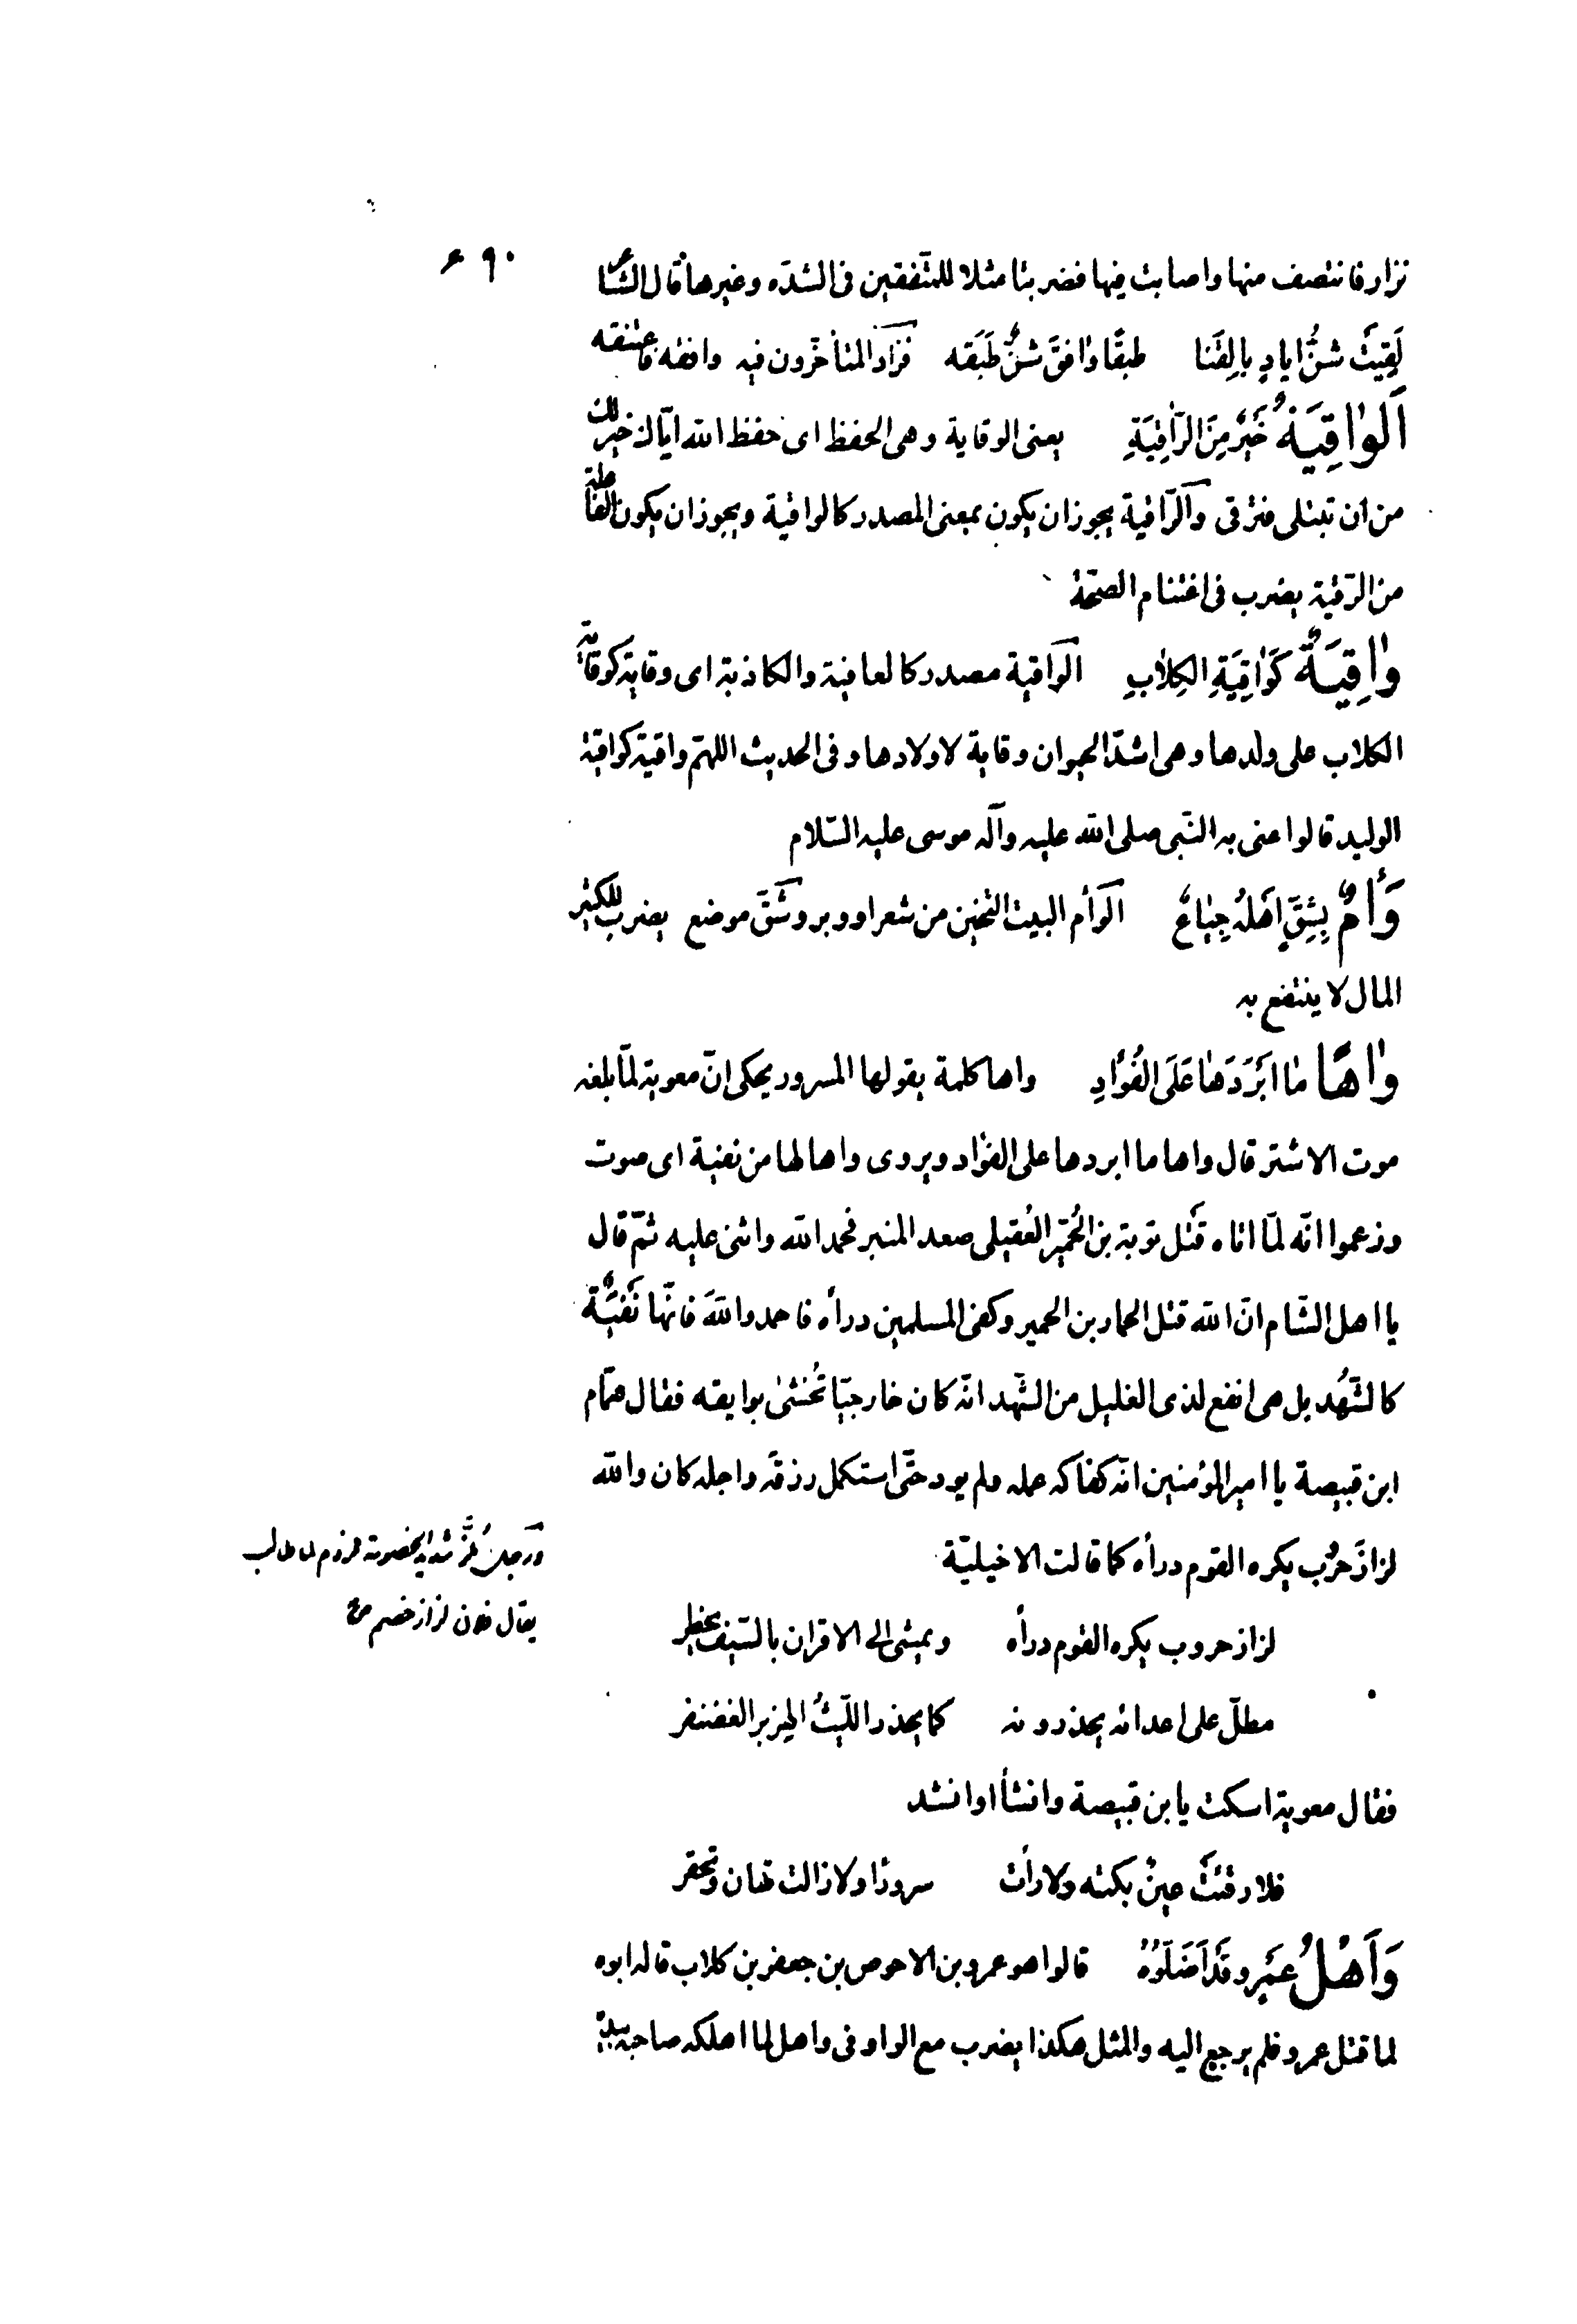 ٦٩٠
نزار فانتصف منها واصابت فيها فضربتا مثلا للمتّفقين فى الشدّه وغيرها قال الشاعر
لَقِيَتْ شنٌّ ايادٍ بالقَنا طبقًا وٰافقَ شنٌّ طَبَقه فزاد المتأخّرون فيه وافقه فاعتنقه
اَلوٰاقِيَةُ خَيْرٌ مِنَ الرّٰاقِيَةِ يعنى الوقاية وهى الحفظ اى حفظ الله ايّاك خير لك
من ان تبتلى فترقى والرّاقية يجوز ان يكون بمعنى المصدر كالواقية ويجوز ان يكون الفاعلة
من الرّقية يضرب فى اغتنام الصحّة
وٰاقِيَةٌ كَوٰاقِيَةِ الكِلاٰبِ الوٓاقية مصدر كالعافية والكاذبة اى وقاية كوقاية
الكلاب على ولدها وهى اشدّ الحيوان وقاية لاولادها وفى الحديث اللهمّ واقية كواقية
الوليد قالوا عنى به النّبى صلى الله عليه وآله موسى عليه السّلام
وَأْمٌ بِشِقٍّ اَهْلُهُ جِيٰاعٌ الوٓأم البيت الثخين من شعر او وبر وشٓقّ موضع يضرب للكثير
المال لا ينتفع به
وٰاهًا مٰا اَبْرَدَهٰا عَلَى الفُؤٰادِ واها كلمة يقولها المسرور يحكى انّ معوية لمّا بلغه
موت الاشتر قال واها ما ابردها على الفؤاد ويروى واها لها من نغية اى صوت
وزعموا انّه لمّا اتاه قَتل توبة بن الحُميّر العُقيلى صعد المنبر فحمد الله واثنى عليه ثمّ قال
يا اهل الشّام انّ الله قتل الحمار بن الحمير وكفى المسلمين درأه فاحمدوا اللهَ فانّها نَغْيَةٌ
كالشّهُد بل هى انفع لذى الغليل من الشّهد انّه كان خارجيّا تُخشىٰ بوايقه فقال همّام
ابن قبيصة يا امير المؤمنين انّه كفاكه عمله ولم يود حتّى استكمل رزقه واجله كان والله
لزاز حرُب يكره القوم درأه كما قالت الاخيليّة
ورٓجل لُزّ شديد الخصومة لزوم لما طالب
يقال فلان لزاز خصم
لزاز حروب يكره القوم درأه ويمشى الى الاقران بالسّيف يخطر
مطلّ على اعدائه يحذرونه كما يحذر اللّيثُ الهزبر الغضنفر
فقال معوية اسكت يا بن قبيصة وانشأ او انشد
فلا رقئتْ عينٌ بكته ولا رأت سرورًا ولا زالت تهان وتحقر
وَاَهْلُ عَمْرٍو قَدْ اَضَلّوُهُ قالوا هو عمرو بن الاحوص بن جعفر بن كلاب قاله ابوه
لما قتل عمرو فلم يرجع اليه والمثل هكذا يضرب مع الواو فى واهل لما اهلكه صاحبه بيده